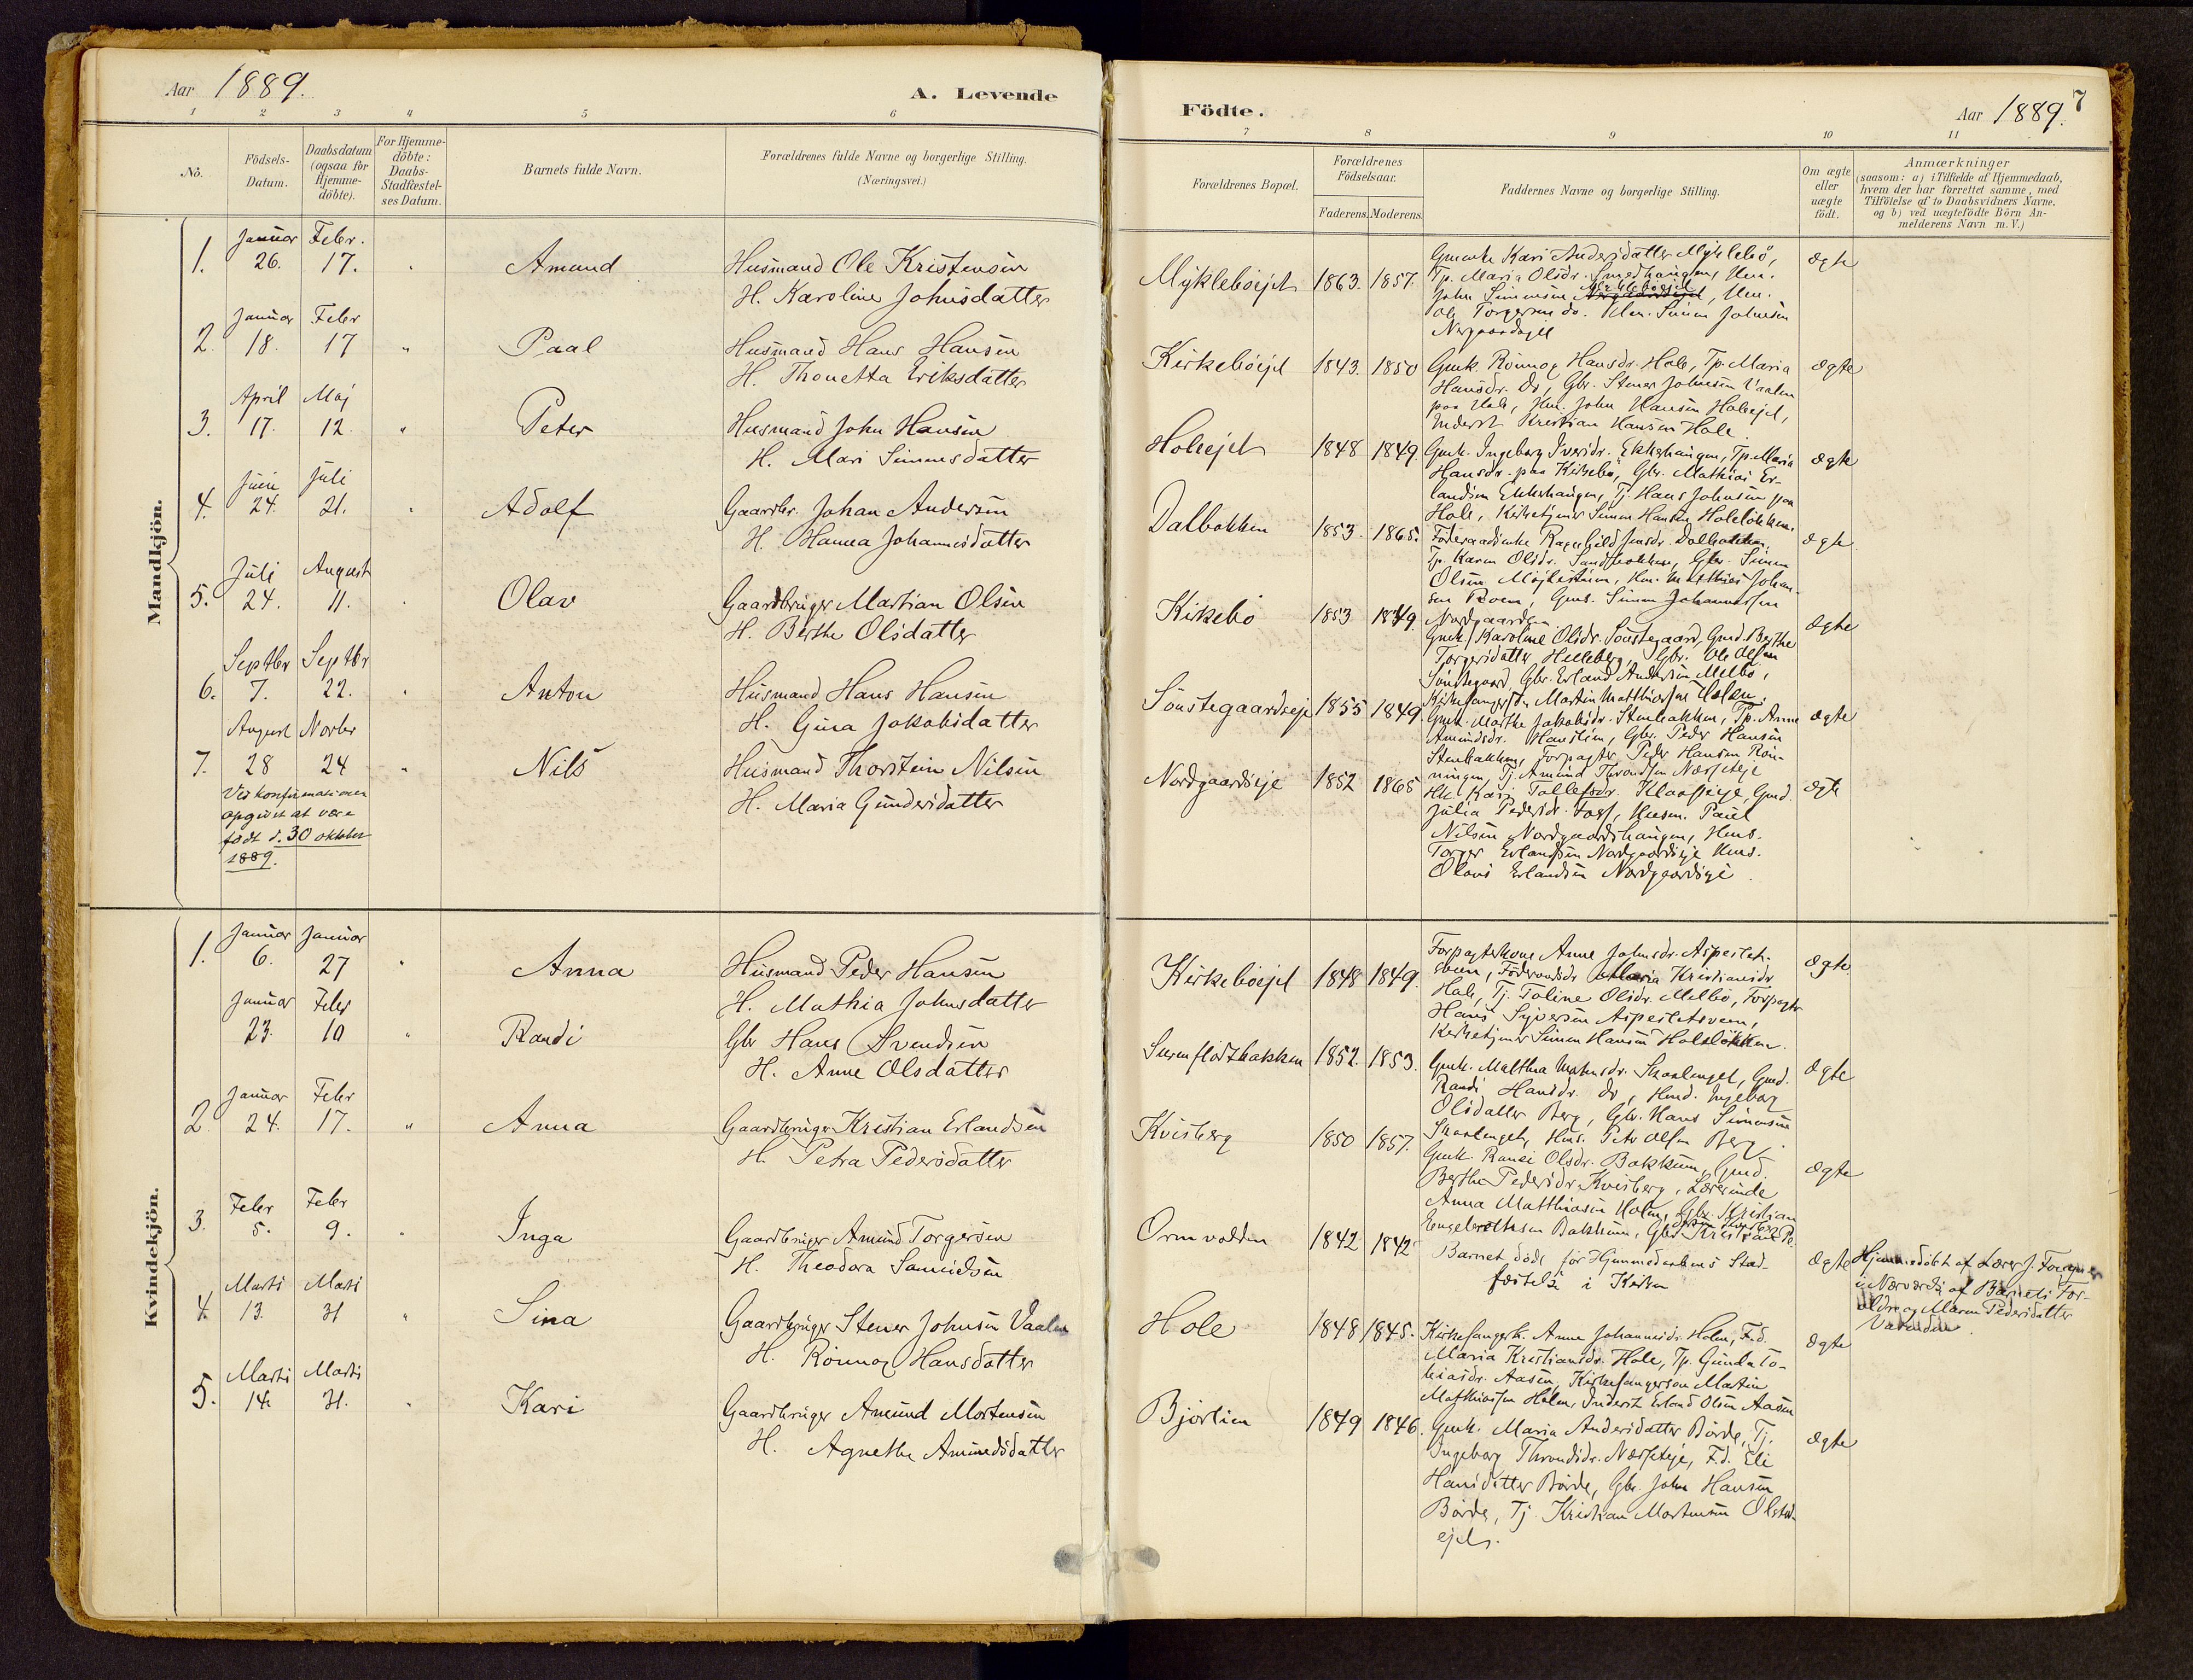 Aar 1889.
A. Levende
1 2 3 4 5 6
No.
Födsels-
Datum.
Daabsdatum
(ogsaa for
Hjemme-
döbte).
For Hjemme-
döbte:
Daabs-
Stadfæstel-
ses Datum.
Barnets fulde Navn.
Forældrenes fulde Navne og borgerlige Stilling.
(Næringsvei.)
Mandkjön.
1. Januar 26. Febr. 17. Amund Husmand Ole Kristensen
H. Karoline Johnsdatter
2. Januar 18. Febr 17 " Paal Husmand Hans Hansen
H. Thonetta Eriksdatter
3. April 17. Maj 12. " Peter Husmand John Hansen
H. Mari Simensdatter
4. Juni 24. Juli 21. Adolf Gaardbr. Johan Andersen
H. Hanna Johannesdatter
5. Juli 24. August 11. Olav Gaardbruger Martian Olsen
H. Berthe Olsdatter
6. Septbr 7. Septbr 22. Anton Husmand Hans Hansen
H. Gina Jakobsdatter
7. August 28 Novbr 24 " Nils Husmand Thorstein Nilsen
H. Maria Gundersdatter
Ved konfirmationen
opgivet at være
født d. 30 oktober
1889.
Kvindekjön.
1. Januar 6. Januar 27 " Anna Husmand Peder Hansen
H. Mathia Johnsdatter
Januar 23. Febr 10 " Randi Gbr Hans Svendsen
H. Anne Olsdatter
2. Januar 24. Febr 17. " Anna Gaardbruger Kristian Erlandsen
H. Petra Pedersdatter
3. Febr 5. Febr 9. Inga Gaardbruger Amund Torgersen
H. Theodora Samuelsen
4. Marts 13. Marts 31 " Sina Gaardbruger Stener Johnsen Vaalen
H. Rönnog Hansdatter
5. Marts 14. Marts 31. Kari Gaardbruger Amund Mortensen
H. Agnethe Amundsdatter
Födte.
Aar 1889. 7
7 8 9 10 11
Forældrenes Bopæl.
Forældrenes
Födselsaar.
Faderens. Moderens.
Faddernes Navne og borgerlige Stilling.
Om ægte
eller
uægte
födt.
Anmærkninger
(saasom: a) i Tilfælde af Hjemmedaab,
hvem der har forrettet samme, med
Tilföielse af to Daabsvidners Navne.
og b) ved uægtefödte Börn An-
melderens Navn m. V.)
Mykleboejet 1863. 1857. Kari Andersdatter Myklebö, ægte
Tp. Maria Olsdr. Smedhaugen, Hm.
John Simensen Mykleboejet, Hm.
Ole Torgersen do. Simen Johnsen
Kirkeböejet 1843. 1850 Gmk. Rönnog Hansdr. Hole, Tp. Maria ægte
Hansdr. do, Gbr. Stener Johnsen Vaalen
paa Hole, Hm. John Hansen Holeejet,
Inderst Kristian Hansen Hole
Holeejet 1848 1849. Gmk. Ingeborg Iversdr. Ekkerhaugen, Tp. Maria ægte
Hansdr. paa Kirkebö, Gbr. Mathias Er-
landsen Ekkerhaugen, Tj. Hans Johnsen paa
Hole, Kirketjener Simen Hansen Holelökken.
Dalbakken 1853. 1865. Föderaadsenke Ragnhild Dalbakken, ægte
Tp. Karen Olsdr. Sandbakken, Gbr. Simen
Olsen, Hm. Matthias Johan-
sen Roen, Gmd. Simen Johannessen
Nordgaarden.
Kirkebö 1853 1849. Gmk. Karoline Olsdr. Sönstegaard, Gmd. Berthe ægte
Torgersdatter Helleberg, Gbr. Ole Olsen
Sönstegaard, Gbr. Erland Andersen Melbö,
Kirkesangersön Martin Matthiassen Holen.
Sönstegaardseje 1855 1849 Gmk. Marthe Jakobsdr. Stenbakken, Tp. Anne ægte
Amundsdr. Haugen, Gbr. Peder Hansen
Stenbakken, Forpagter Peder Hansen Rön-
ningen, Tj. Amund Throndsen Næsseteje
Nordgaardseje 1852 1865 Hk. Kari Tollefsdr. Klaapeje, Gmd. ægte
Julia Pedersdr., Husm. Paul
Nilsen Nordgaardshaugen, Hus.
Torger Erlandsen Nordgaardseje Hus.
Olaus Erlandsen Nordgaardseje.
Kirkeböejet 1848 1849. Forpagterkone Anne Johnsdr. Aspeslet- ægte
sveen, Föderaadsdr Maria Kristiansdr
Hole, Tj. Toline Olsdr. Melbö, Forpagter
Hans Syversen Aspesletsveen,
Kirketjener Simen Hansen Holelökken.
1852. 1853. Gmk. Matthea Skaalenget, Gmd. ægte
Randi Hansdr. do, Hmd. Ingeborg
Olsdatter Berg, Gbr. Hans Simensen
Skaalenget, Hus. Peter Olsen Berg.
Kvisberg 1850 1857. Gmk. Randi Olsdr. Bakkum, Gmd. ægte
Berthe Pedersdr. Kvisberg, Lærerinde
Anna Matthiasen Holen, Gbr. Kristian
Engebrethsen Bakkum, Gbr. Kristian Pe-
dersen Kvisberg
Ormvolden 1842 1842 Barnet död för Hjemmedaabens Stad- ægte
fæstelse i Kirken
Hjemmedöbt af Lærer J. Forgner
i Nærværelse af Barnets For-
ældre og Maren Pedersdatter
Hole 1848 1845. Kirkesangerk. Anne Johannesdr. Holen, F.d. ægte
Maria Kristiansdr. Hole, Tp. Gunda To-
biasdr. Aasen, Kirkesangersön Martin
Mathiassen Holen, Inderst Erland Olsen Aasen
Björlien 1849 1846. Gmk. Maria Andersdatter Börde, Tj. ægte
Ingeborg Throndsdr. Næsseteje, F.d. Eli
Hansdatter Börde, Gbr. John Hansen
Börde, Tj. Kristian Mortensen Olstad-
ejet.